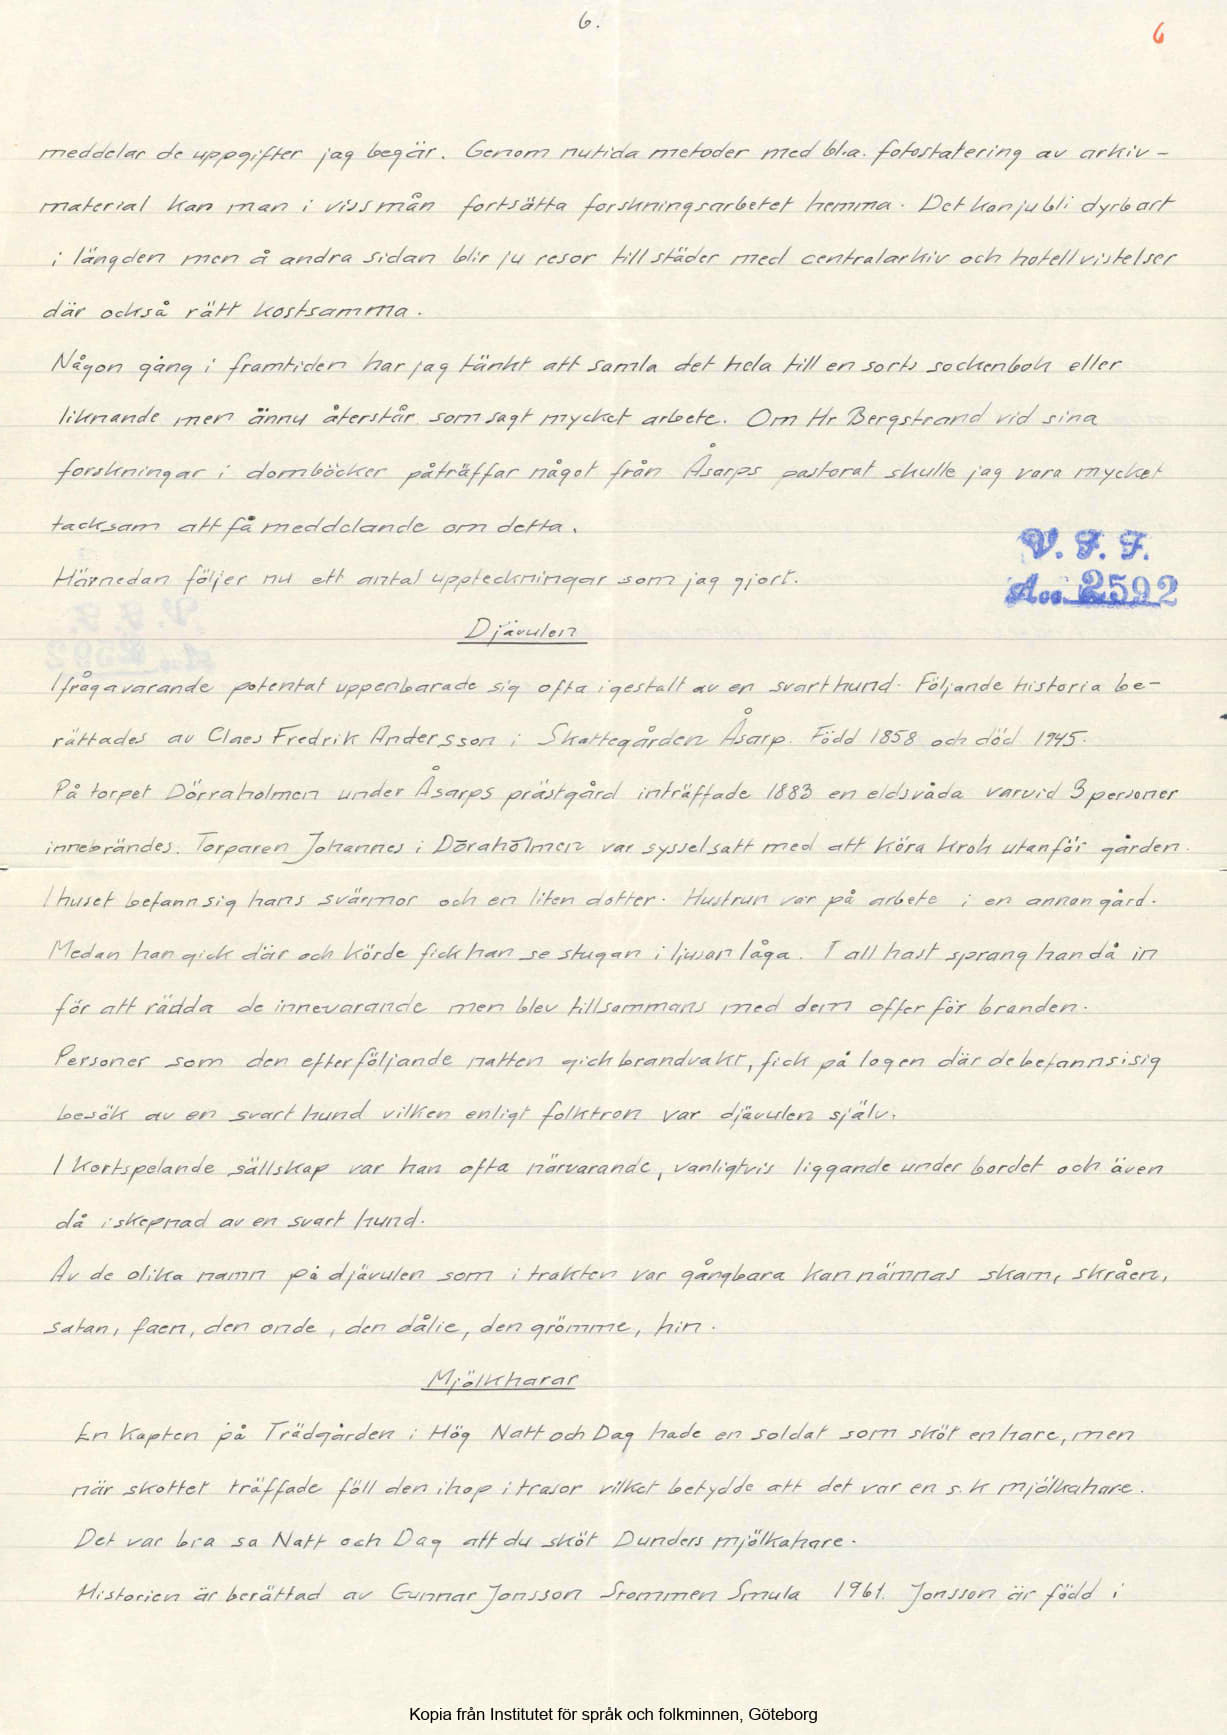 6.
6
meddelar de uppgifter jag begär. Genom nutida metoder med bl.a. fotostatering av arkiv-
material kan man i viss mån fortsätta forskningsarbetet hemma. Det kan ju bli dyrbart
i längden men å andra sidan blir ju resor till städer med centralarkiv och hotellvistelser
där också rätt kostsamma.
Någon gång i framtiden har jag tänkt att samla det hela till en sorts sockenbok eller
liknande men ännu återstår som sagt mycket arbete. Om Hr Bergstrand vid sina
forskningar i domböcker påträffar något från Åsarps pastorat skulle jag vara mycket
tacksam att få meddelande om detta.
V. F. F.
Härnedan följer nu ett antal uppteckningar som jag gjort.
Acc. 2592
Djävulen
Ifrågavarande potentat uppenbarade sig ofta i gestalt av en svart hund. Följande historia be-
rättades av Claes Fredrik Andersson i Skattegården Åsarp. Född 1858 och död 1945.
På torpet Dörraholmen under Åsarps prästgård inträffade 1883 en eldsvåda varvid 3 personer
innebrändes. Torparen Johannes i Döraholmen var sysselsatt med att köra krok utanför gården.
I huset befann sig hans svärmor och en liten dotter. Hustrun var på arbete i en annan gård.
Medan han gick där och körde fick han se stugan i ljusan låga. I all hast sprang han då in
för att rädda de innevarande men blev tillsammans med dem offer för branden.
Personer som den efterföljande natten gick brandvakt, fick på logen där de befann sisig
besök av en svart hund vilken enligt folktron var djävulen själv.
I kortspelande sällskap var han ofta närvarande, vanligtvis liggande under bordet och även
då i skepnad av en svart hund.
Av de olika namn på djävulen som i trakten var gångbara kan nämnas skam, skråen,
satan, faen, den onde, den dålie, den grömme, hin.
Mjölkharar
En kapten på Trädgården i Hög Natt och Dag hade en soldat som sköt en hare, men
när skottet träffade föll den ihop i trasor vilket betydde att det var en s.k mjölkahare.
Det var bra sa Natt och Dag att du sköt Dunders mjölkahare.
Historien är berättad av Gunnar Jonsson Stommen Smula 1961. Jonsson är född i
Kopia från Institutet för språk och folkminnen, Göteborg